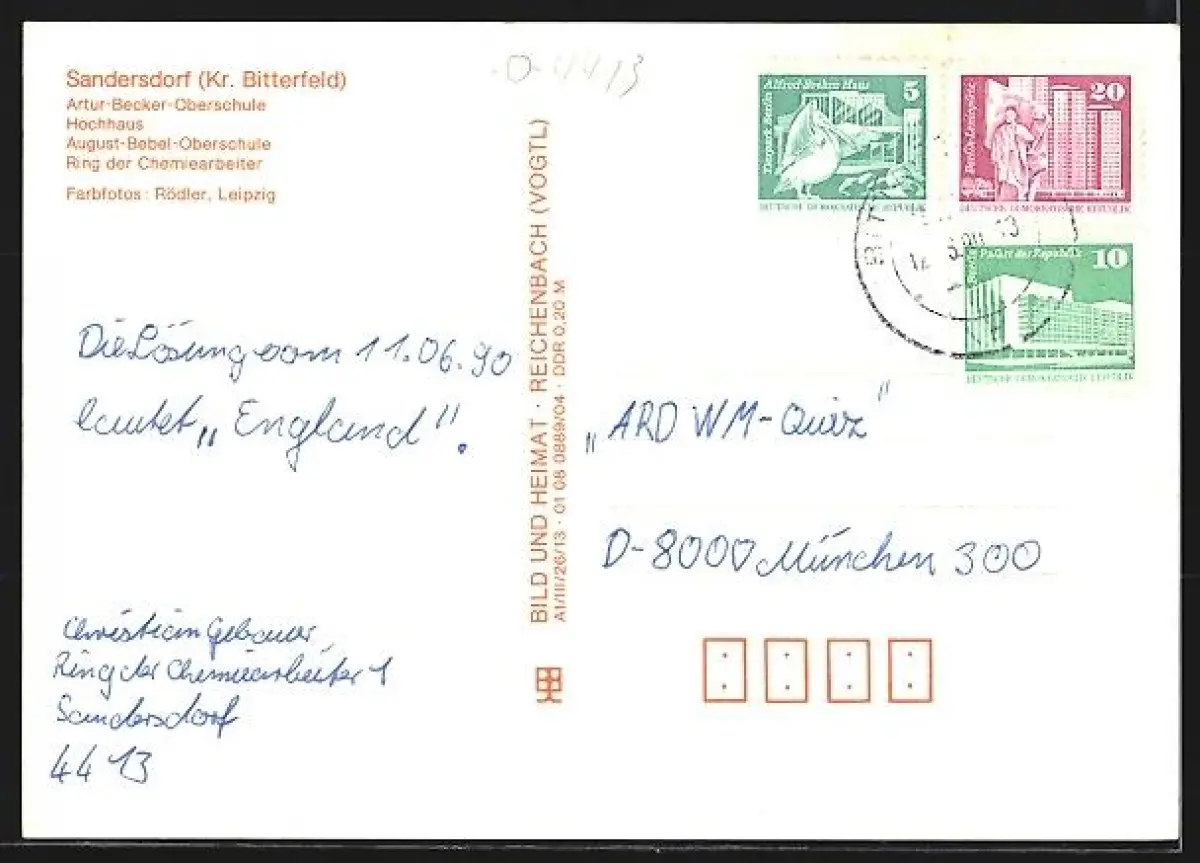 Sandersdorf (Kr. Bitterfeld)
Artur-Becker-Oberschule
Hochhaus
August-Bebel-Oberschule
Ring der Chemiearbeiter
Farbfotos: Rödler, Leipzig
Die Lösung vom 11.06.90
lautet „England".
Christian Gebauer
Ring der Chemiearbeiter 1
Sandersdorf
4413
BILD UND HEIMAT · REICHENBACH (VOGTL)
A1/III/26/13 · 01 08 0889/04 · DDR 0,20 M
O-4413
Tierpark Berlin
Alfred-Brehm-Haus
5
DEUTSCHE DEMOKRATISCHE REPUBLIK
Berlin-Leninplatz
20
DEUTSCHE DEMOKRATISCHE REPUBLIK
Berlin
Palast der Republik
10
DEUTSCHE DEMOKRATISCHE REPUBLIK
„ARD WM-Quiz"
D-8000 München 300